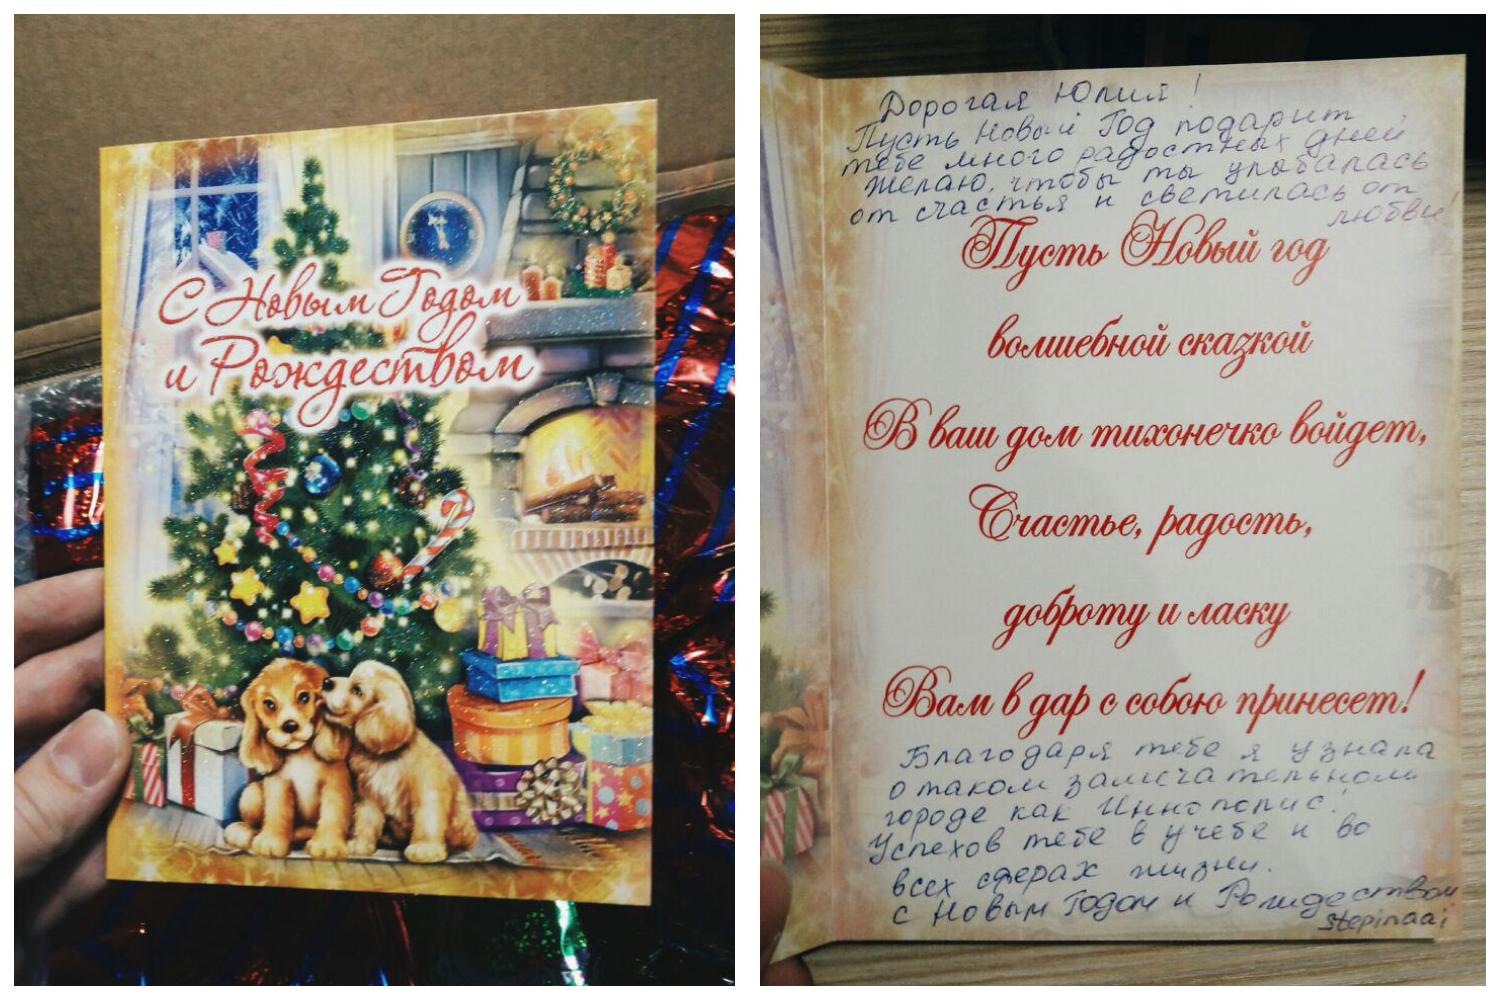 С Новым Годом
и Рождеством
Дорогая Юлия!
Пусть Новый Год подарит
тебе много радостных дней
Желаю, чтобы ты улыбалась
от счастья и светилась от
любви!
Пусть Новый год
волшебной сказкой
В ваш дом тихонечко войдет,
Счастье, радость,
доброту и ласку
Вам в дар с собою принесет!
Благодаря тебе я узнала
о таком замечательном
городе как Иннополис!
Успехов тебе в учебе и во
всех сферах жизни.
с Новым Годом и Рождеством
stepinaai